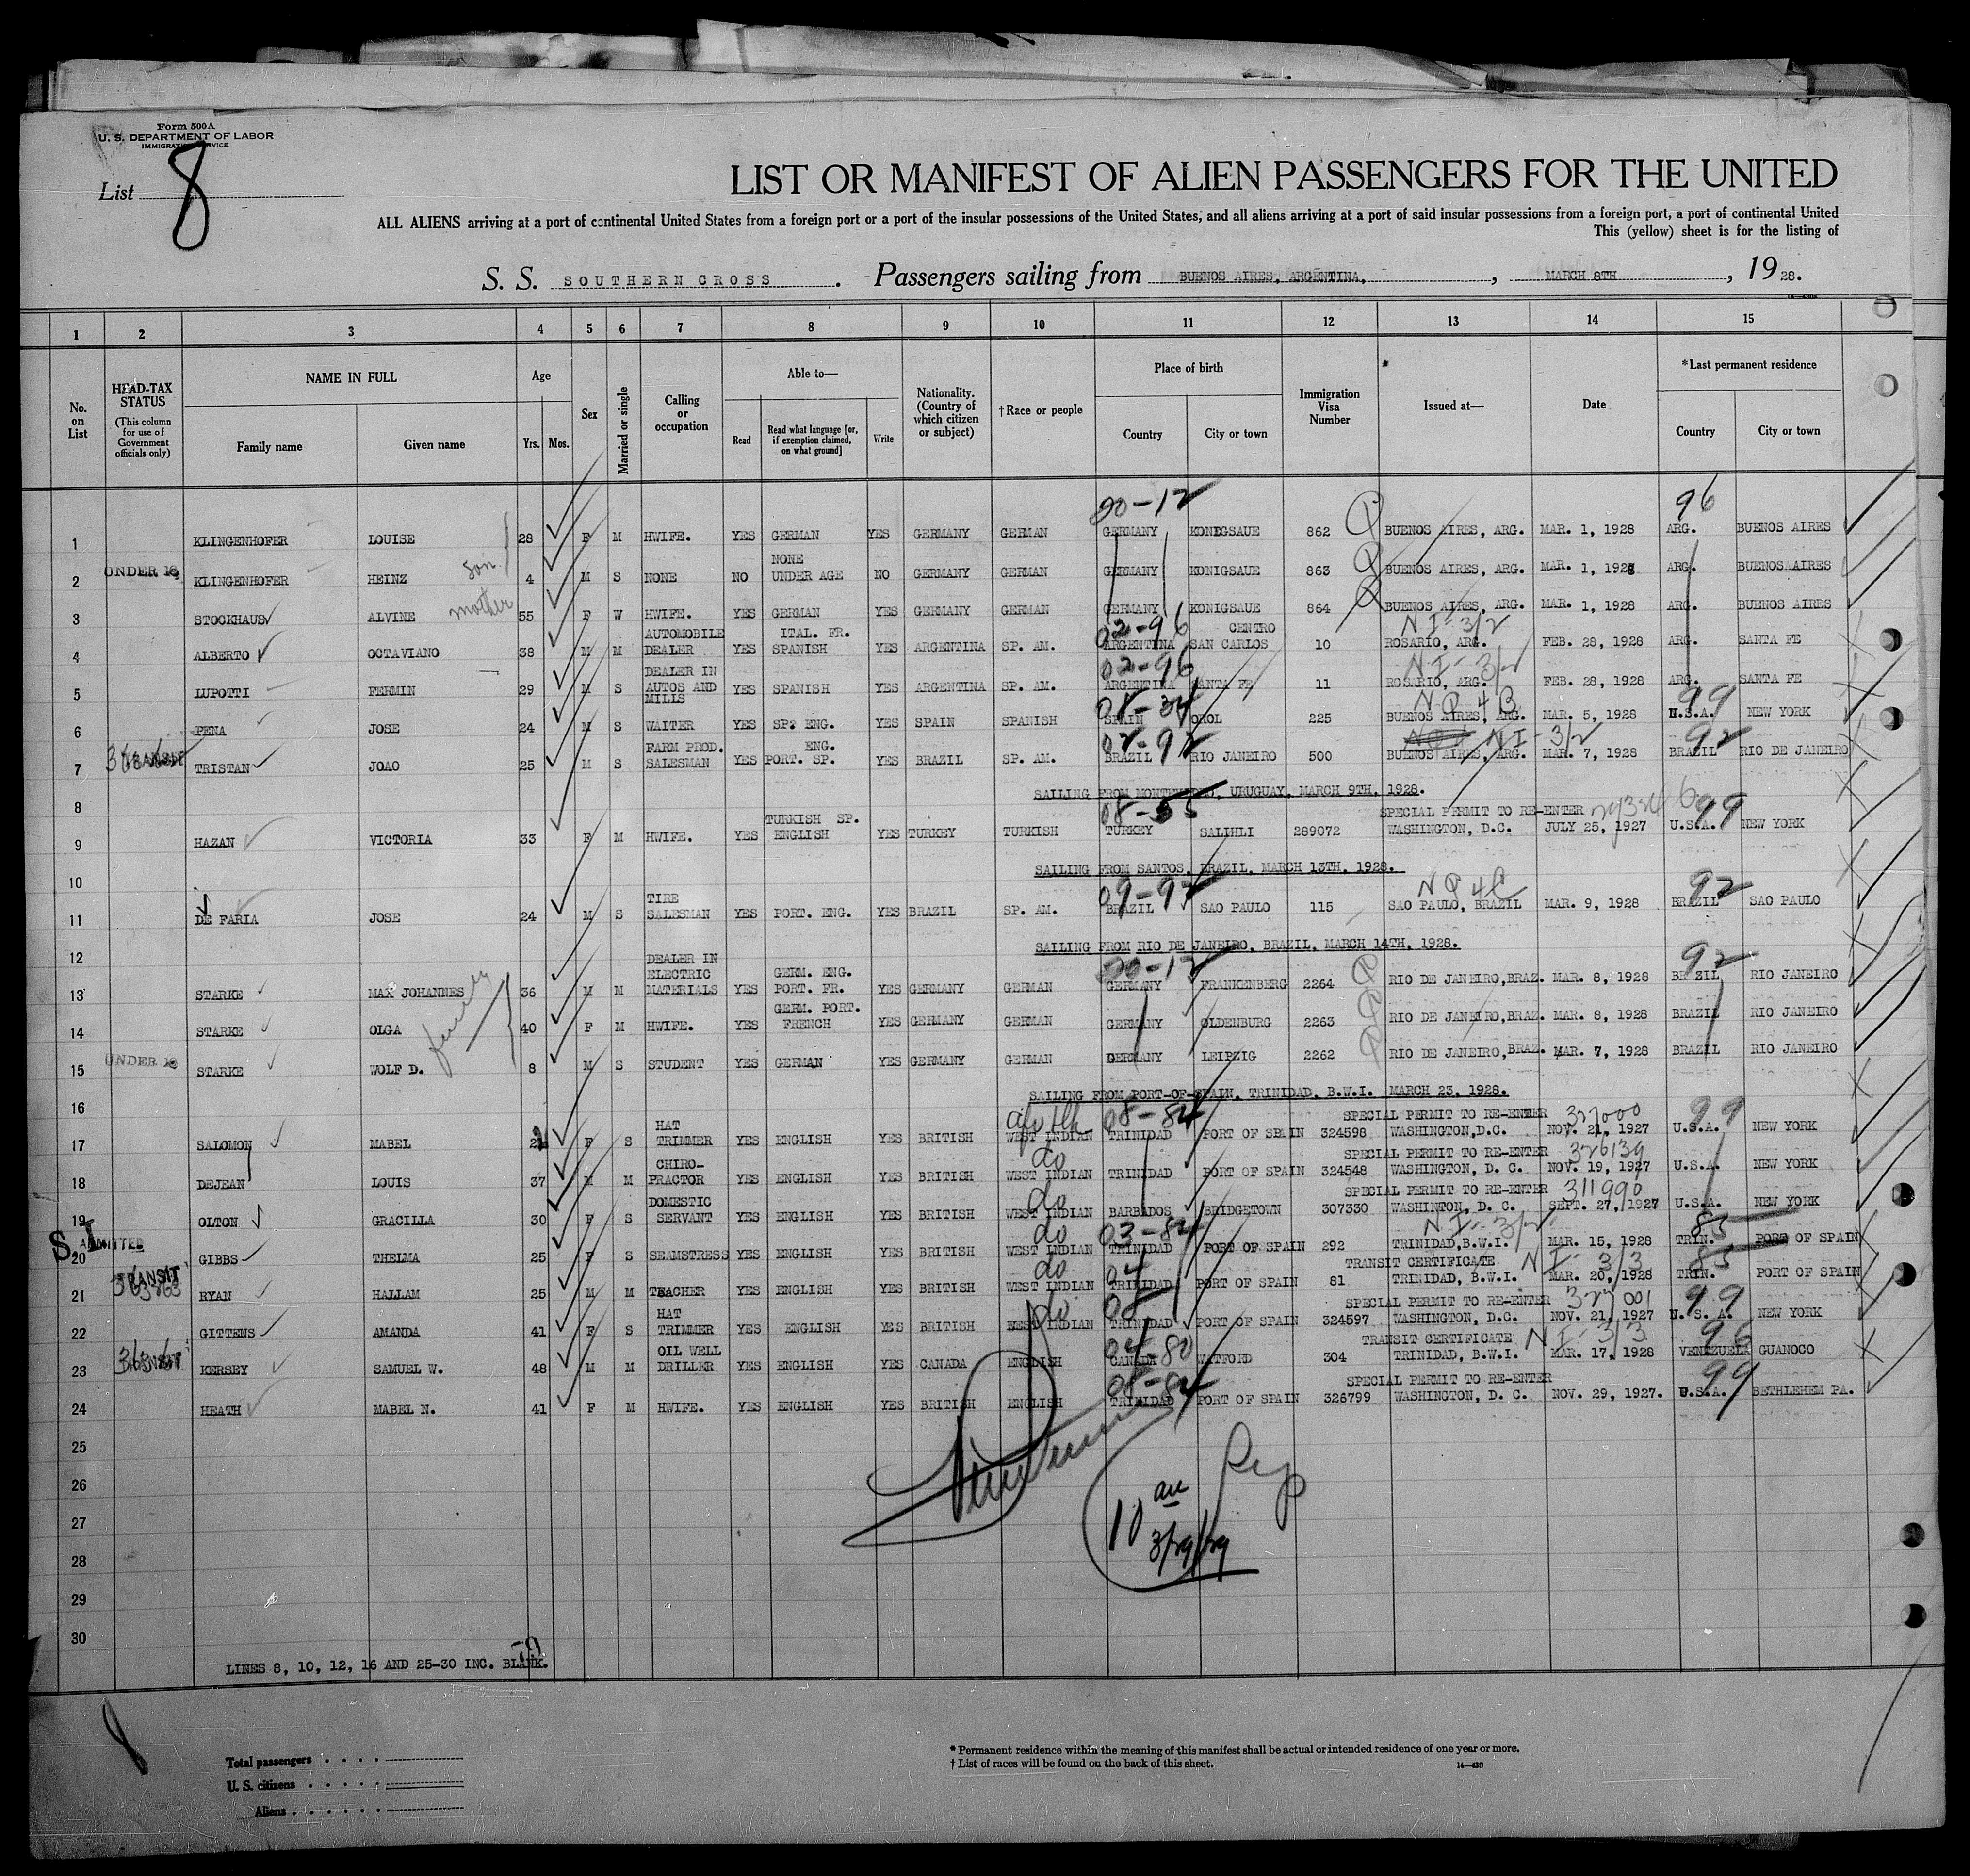 Form 500A
U. S. DEPARTMENT OF LABOR
IMMIGRATION SERVICE
List 8
LIST OR MANIFEST OF ALIEN PASSENGERS FOR THE UNITED
ALL ALIENS arriving at a port of continental United States from a foreign port or a port of the insular possessions of the United States, and all aliens arriving at a port of said insular possessions from a foreign port, a port of continental United
This (yellow) sheet is for the listing of
S. S. SOUTHERN CROSS. Passengers sailing from BUENOS AIRES, ARGENTINA, , MARCH 8TH , 1928.
1 2 3 4 5 6 7 8 9 10 11 12 13 14 15
No. on List
HEAD-TAX STATUS (This column for use of Government officials only)
NAME IN FULL
Family name Given name
Age
Yrs. Mos.
Sex
Married or single
Calling or occupation
Able to—
Read Read what language [or, if exemption claimed, on what ground] Write
Nationality. (Country of which citizen or subject)
†Race or people
Place of birth
Country City or town
Immigration Visa Number
Issued at—
Date
*Last permanent residence
Country City or town
20-12 96
1 KLINGENHOFER LOUISE 28 F M HWIFE. YES GERMAN YES GERMANY GERMAN GERMANY KONIGSAUE 862 BUENOS AIRES, ARG. MAR. 1, 1928 ARG. BUENOS AIRES
2 UNDER 16 KLINGENHOFER HEINZ son 4 M S NONE NO NONE UNDER AGE NO GERMANY GERMAN GERMANY KONIGSAUE 863 BUENOS AIRES, ARG. MAR. 1, 1928 ARG. BUENOS AIRES
3 STOCKHAUS ALVINE mother 55 F W HWIFE. YES GERMAN YES GERMANY GERMAN GERMANY KONIGSAUE 864 BUENOS AIRES, ARG. MAR. 1, 1928 ARG. BUENOS AIRES
02-96 NI-3/2
4 ALBERTO OCTAVIANO 38 M M AUTOMOBILE DEALER YES ITAL. FR. SPANISH YES ARGENTINA SP. AM. ARGENTINA CENTRO SAN CARLOS 10 ROSARIO, ARG. FEB. 28, 1928 ARG. SANTA FE
02-96 NI-3/2
5 LUPOTTI FERMIN 29 M S DEALER IN AUTOS AND MILLS YES SPANISH YES ARGENTINA SP. AM. ARGENTINA SANTA FE 11 ROSARIO, ARG. FEB. 28, 1928 ARG. SANTA FE
08-34 NQ 4B 99
6 PENA JOSE 24 M S WAITER YES SP. ENG. YES SPAIN SPANISH SPAIN OROL 225 BUENOS AIRES, ARG. MAR. 5, 1928 U.S.A. NEW YORK
02-92 NI-3/2 92
7 TRANSIT TRISTAN JOAO 25 M S FARM PROD. SALESMAN YES ENG. PORT. SP. YES BRAZIL SP. AM. BRAZIL RIO JANEIRO 500 BUENOS AIRES, ARG. MAR. 7, 1928 BRAZIL RIO DE JANEIRO
8 SAILING FROM MONTEVIDEO, URUGUAY, MARCH 9TH, 1928.
08-55 99
9 HAZAN VICTORIA 33 F M HWIFE. YES TURKISH SP. ENGLISH YES TURKEY TURKISH TURKEY SALIHLI 289072 SPECIAL PERMIT TO RE-ENTER WASHINGTON, D.C. JULY 25, 1927 U.S.A. NEW YORK
10 SAILING FROM SANTOS, BRAZIL, MARCH 13TH, 1928.
09-92 NQ 4C 92
11 DE FARIA JOSE 24 M S TIRE SALESMAN YES PORT. ENG. YES BRAZIL SP. AM. BRAZIL SAO PAULO 115 SAO PAULO, BRAZIL MAR. 9, 1928 BRAZIL SAO PAULO
12 SAILING FROM RIO DE JANEIRO, BRAZIL, MARCH 14TH, 1928.
20-12 92
13 STARKE MAX JOHANNES 36 M M DEALER IN ELECTRIC MATERIALS YES GERM. ENG. PORT. FR. YES GERMANY GERMAN GERMANY FRANKENBERG 2264 RIO DE JANEIRO, BRAZ. MAR. 8, 1928 BRAZIL RIO JANEIRO
family
14 STARKE OLGA 40 F M HWIFE. YES GERM. PORT. FRENCH YES GERMANY GERMAN GERMANY OLDENBURG 2263 RIO DE JANEIRO, BRAZ. MAR. 8, 1928 BRAZIL RIO JANEIRO
15 UNDER 16 STARKE WOLF D. 8 M S STUDENT YES GERMAN YES GERMANY GERMAN GERMANY LEIPZIG 2262 RIO DE JANEIRO, BRAZ. MAR. 7, 1928 BRAZIL RIO JANEIRO
16 SAILING FROM PORT-OF-SPAIN, TRINIDAD, B.W.I. MARCH 23, 1928.
08-84 327000 99
17 SALOMON MABEL F S HAT TRIMMER YES ENGLISH YES BRITISH WEST INDIAN TRINIDAD PORT OF SPAIN 324598 SPECIAL PERMIT TO RE-ENTER WASHINGTON, D.C. NOV. 21, 1927 U.S.A. NEW YORK
do 326139
18 DEJEAN LOUIS 37 M M CHIRO-PRACTOR YES ENGLISH YES BRITISH WEST INDIAN TRINIDAD PORT OF SPAIN 324548 SPECIAL PERMIT TO RE-ENTER WASHINGTON, D. C. NOV. 19, 1927 U.S.A. NEW YORK
do 311990
19 OLTON GRACILLA 30 F S DOMESTIC SERVANT YES ENGLISH YES BRITISH WEST INDIAN BARBADOS BRIDGETOWN 307330 SPECIAL PERMIT TO RE-ENTER WASHINGTON, D. C. SEPT. 27, 1927 U.S.A. NEW YORK
S.I. ADMITTED do 03-84 NI-3/2 85
20 GIBBS THELMA 25 F S SEAMSTRESS YES ENGLISH YES BRITISH WEST INDIAN TRINIDAD PORT OF SPAIN 292 TRINIDAD, B.W.I. MAR. 15, 1928 TRIN. PORT OF SPAIN
do 04 NI-3/3 85
21 TRANSIT RYAN HALLAM 25 M M TEACHER YES ENGLISH YES BRITISH WEST INDIAN TRINIDAD PORT OF SPAIN 81 TRANSIT CERTIFICATE TRINIDAD, B.W.I. MAR. 20, 1928 TRIN. PORT OF SPAIN
do 08 327001 99
22 GITTENS AMANDA 41 F S HAT TRIMMER YES ENGLISH YES BRITISH WEST INDIAN TRINIDAD PORT OF SPAIN 324597 SPECIAL PERMIT TO RE-ENTER WASHINGTON, D.C. NOV. 21, 1927 U.S.A. NEW YORK
04-80 NI-3/3 96
23 TRANSIT KERSEY SAMUEL W. 48 M M OIL WELL DRILLER YES ENGLISH YES CANADA ENGLISH CANADA WATFORD 304 TRANSIT CERTIFICATE TRINIDAD, B.W.I. MAR. 17, 1928 VENEZUELA GUANOCO
08-84 99
24 HEATH MABEL N. 41 F M HWIFE. YES ENGLISH YES BRITISH ENGLISH TRINIDAD PORT OF SPAIN 326799 SPECIAL PERMIT TO RE-ENTER WASHINGTON, D. C. NOV. 29, 1927. U.S.A. BETHLEHEM PA.
25
26
27
28
29
30
10
LINES 8, 10, 12, 16 AND 25-30 INC. BLANK.
Total passengers . . . .
U. S. citizens . . . . .
Aliens . . . . . .
* Permanent residence within the meaning of this manifest shall be actual or intended residence of one year or more.
† List of races will be found on the back of this sheet.